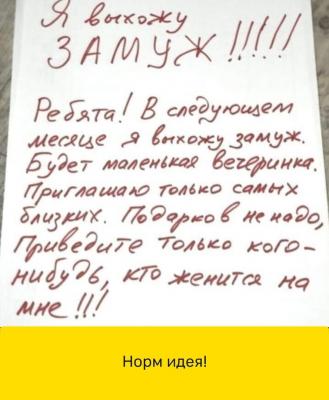 Я выхожу
ЗАМУЖ !!!!!
Ребята! В следующем
месяце я выхожу замуж.
Будет маленькая вечеринка.
Приглашаю только самых
близких. Подарков не надо,
Приведите только кого-
нибудь, кто женится на
мне!!!
Норм идея!